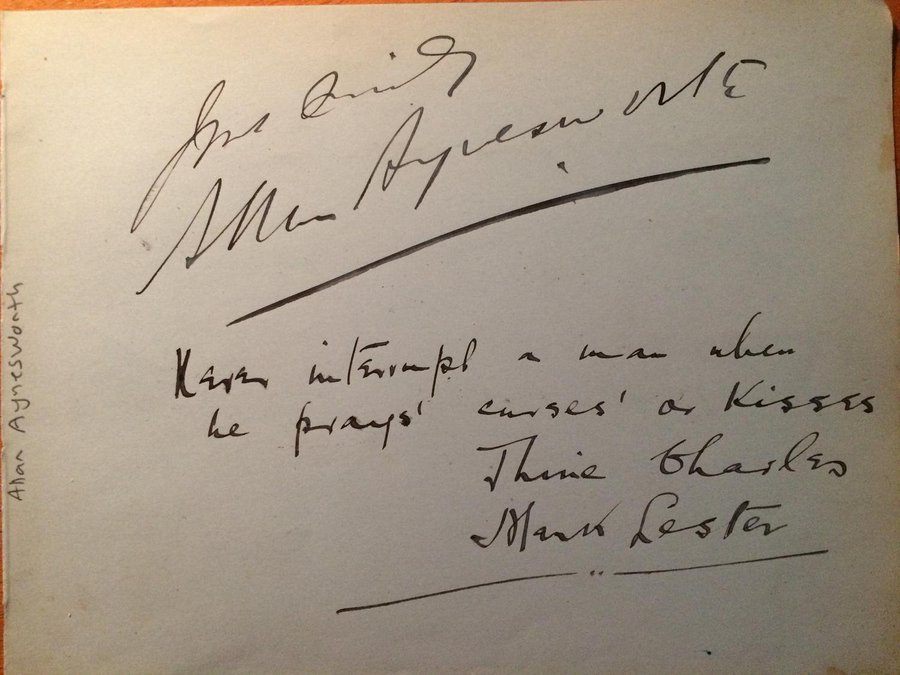 Allan Aynesworth
Never interrupt a man when
he prays' curses' or Kisses
Thine Charles
Mark Lester
Allan Aynesworth